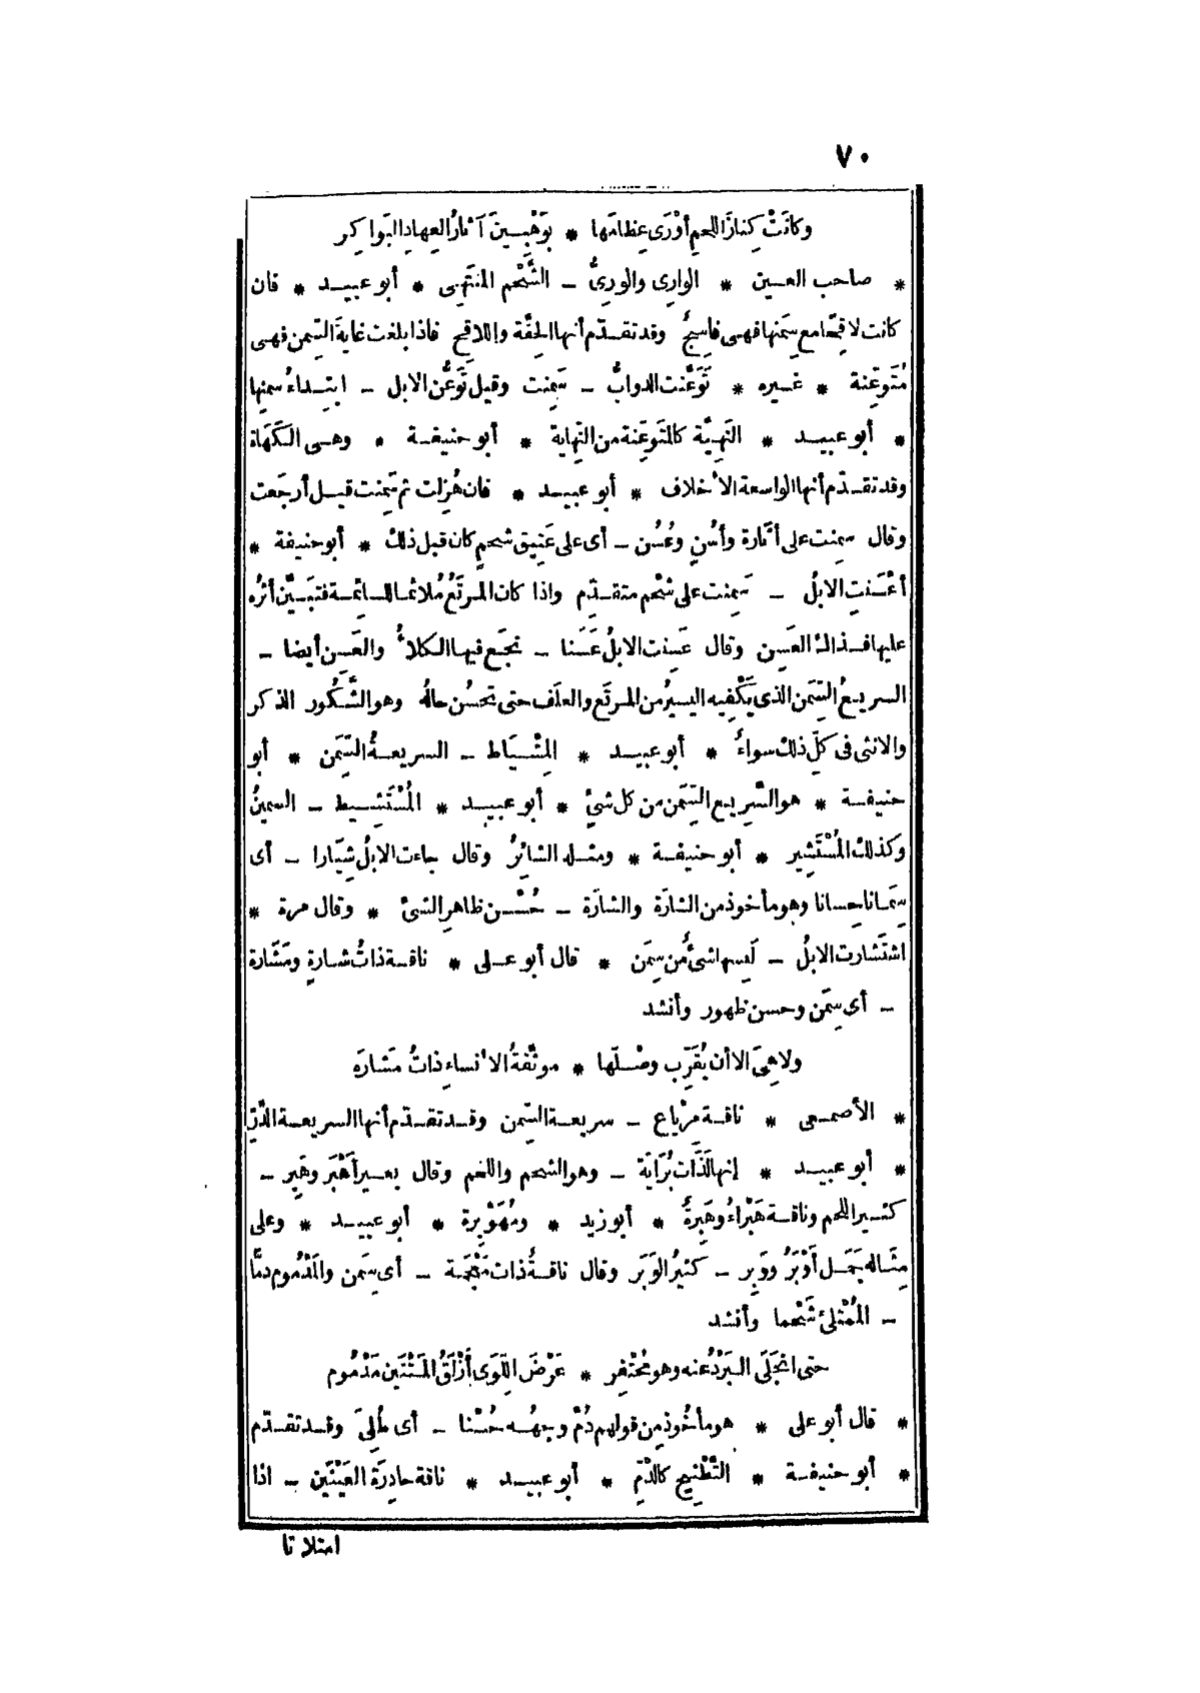 ٧٠
وكانَتْ كِنازَ اللحمِ أوْرَى عِظامَها * بوَهْبِينَ آثارُ العِهادِ البَواكِر
* صاحب العين * الوارِى والوَرِىُّ ــ الشَّحْم المنتَهِى * أبو عبيد * فان
كانت لاقِحًا مع سِمَنها فهى فاسِجٌ وقد تقدّم أنها الحِقَّة واللاقِح فاذا بلغت غايةَ السِّمن فهى
مُتَوعِّنة * غيره * تَوَعَّنت الدوابُّ ــ سَمِنت وقيل تَوَعُّن الابل ــ ابتداءُ سمنِها
* أبو عبيد * النَّهِيَّة كالمتَوعِّنة من النِّهاية * أبو حنيفة * وهى الكَهَاة
وقد تقدّم أنها الواسعة الأخلاف * أبو عبيد * فان هُزِلت ثم سَمِنت قيل أرجَعت
وقال سمِنت على أثَارة وأُسُنٍ وعُسُن ــ أى على عَتِيق شحمٍ كان قبل ذلك * أبو حنيفة *
أعْسَنتِ الابلُ ــ سَمِنت على شَحْم متقدّم واذا كان المرتَعُ مُلائما للسائمة فتبَيَّن أثرُه
عليها فذاك العَسِن وقال عَسِنت الابلُ عَسَنا ــ نجَع فيها الكلأُ والعَسِن أيضا ــ
السريعُ السِّمَن الذى يَكْفيه اليسيرُ من المرتَع والعلَف حتى تحسُن حالُه وهو الشَّكُور الذكر
والانثى فى كلّ ذلك سواءٌ * أبو عبيد * المِشْيَاط ــ السريعةُ السِّمَن * أبو
حنيفة * هو السَّرِيع السِّمَن من كل شئٍ * أبو عبيد * المُسْتَشِيط ــ السمينُ
وكذلك المُسْتَشِير * أبو حنيفة * ومثله الشائرُ وقال جاءت الابلُ شِيَارا ــ أى
سِمَانا حِسانا وهو مأخوذ من الشارَة والشارَة ــ حُسْن ظاهرِ الشئ * وقال مرة *
اشتَشارت الابلُ ــ لَبِسها شئٌ من سِمَن * قال أبو على * ناقة ذاتُ شارةٍ ومَشَارة
ــ أى سِمَن وحسن ظهور وأنشد
ولا هِىَ الا أن يُقَرِّب وصْلَها * موثَّقةُ الأنساءِ ذاتُ مَشارَه
* الأصمعى * ناقة مرْياع ــ سريعة السِّمن وقد تقدّم أنها السريعة الدِّرّة
* أبو عبيد * إنها لَذَات بُرَايَة ــ وهو الشحم واللحم وقال بعير أَهْبَر وهَبِر ــ
كثير اللحم وناقة هَبْراءُ وهَبِرةٌ * أبو زيد * ومُهَوْبِرة * أبو عبيد * وعلى
مِثَاله جَمَل أَوْبَرُ ووَبِر ــ كثيرُ الوَبَر وقال ناقةٌ ذات مَهْجَمة ــ أى سِمَن والمَدْمُوم دمًّا
ــ المُمْتلئ شَحْما وأنشد
حتى انجَلَى البَرْدُ عنه وهو مُحْتَفِر * عَرْضَ اللِّوَى أَزْلَقُ المَتْنَين مَدْمُوم
* قال أبو على * هو مأخُوذ من قولهم دُمَّ وجهُه حُسْنا ــ أى طُلِىَ وقد تقدّم
* أبو حنيفة * التَّطْنِيخ كالدَّمِّ * أبو عبيد * ناقة حادِرَة العَيْنَيْن ــ اذا
امتلاتا